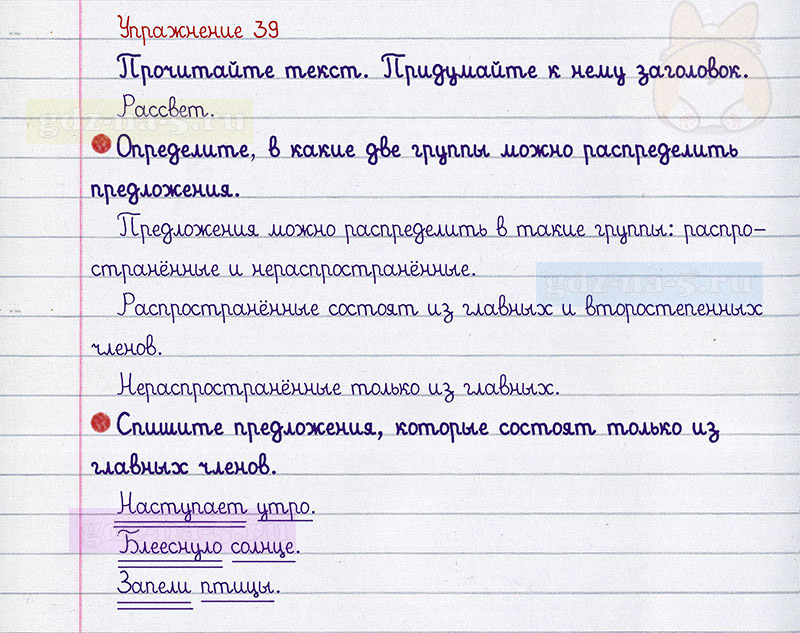 Упражнение 39
Прочитайте текст. Придумайте к нему заголовок.
Рассвет.
gdz-na-5.ru
Определите, в какие две группы можно распределить
предложения.
Предложения можно распределить в такие группы: распро-
странённые и нераспространённые.
gdz-na-5.ru
Распространённые состоят из главных и второстепенных
членов.
Нераспространённые только из главных.
Спишите предложения, которые состоят только из
главных членов.
Наступает утро.
gdz-na-5.ru
Блееснуло солнце.
Запели птицы.